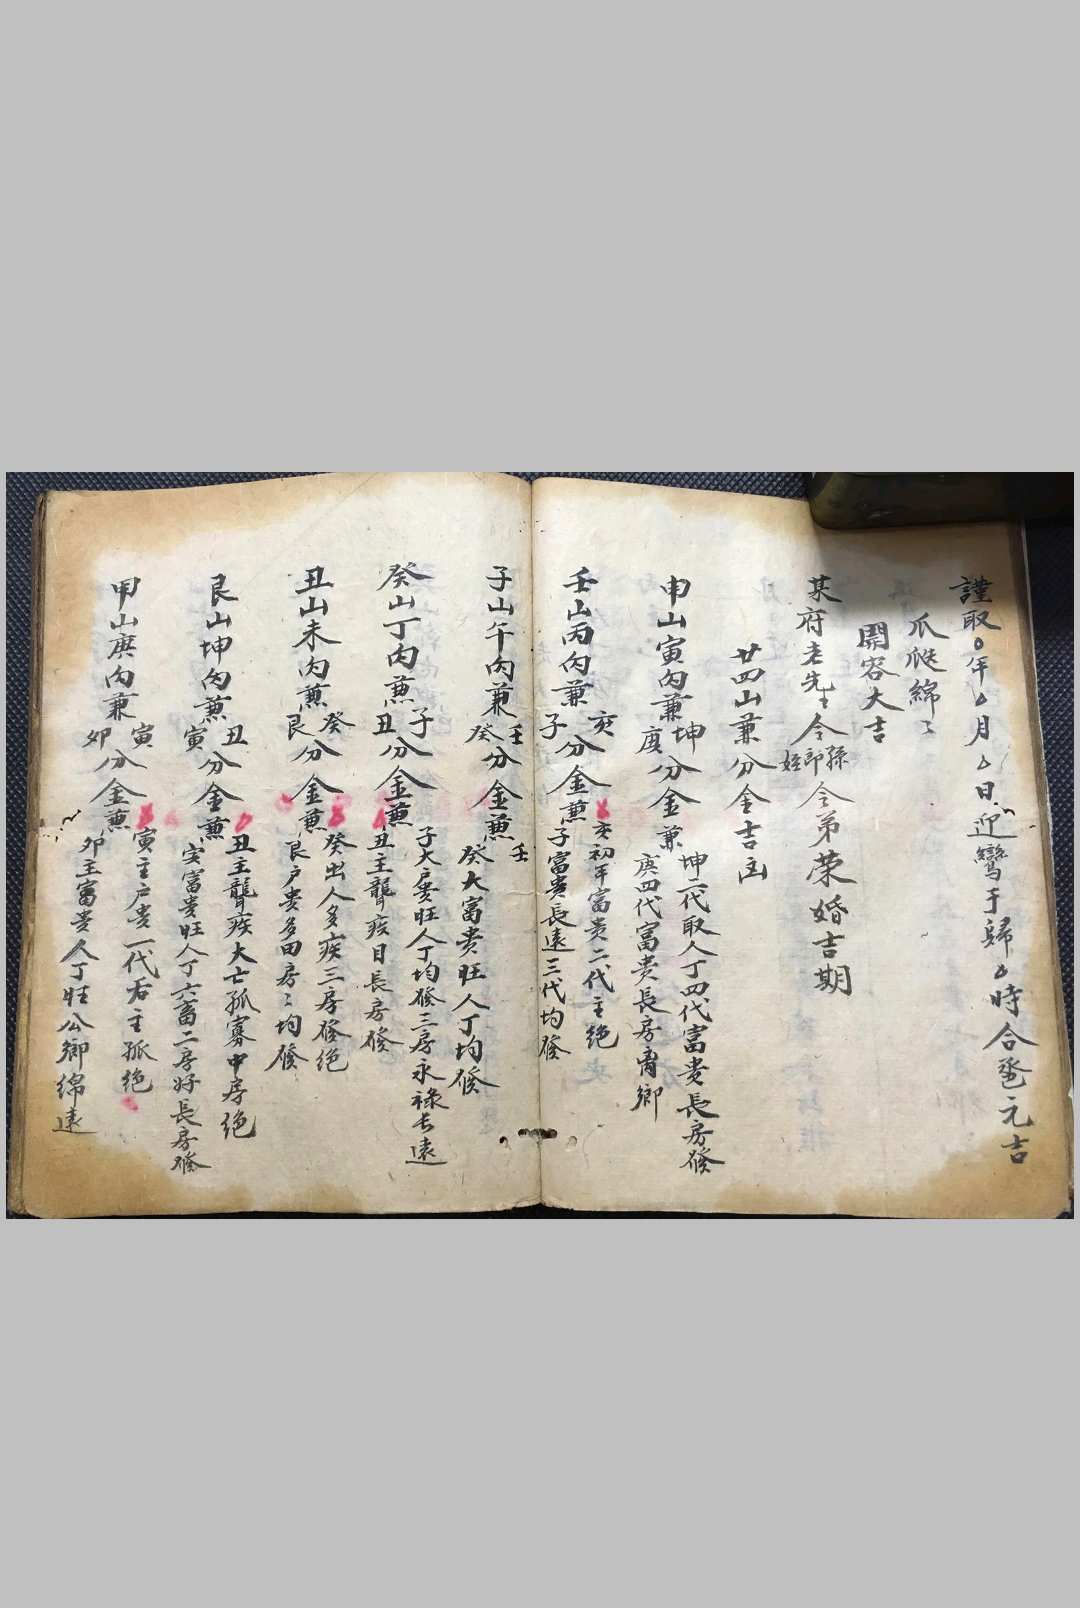 謹取〇年厶月厶日迎鸞于歸厶時合卺元吉
瓜瓞綿〻
開容大吉
某府老先生令孫郎姪令弟荣婚吉期
廿四山兼分金吉凶
申山寅內兼坤庚分金兼
坤二代取人丁四代富貴長房發
庚四代富貴長房离鄉
壬山丙內兼亥子分金兼
亥初年富貴二代主絕
子富貴長遠三代均發
子山午內兼壬癸分金兼
壬
癸大富貴旺人丁均發
癸山丁內兼子丑分金兼
子大户貴旺人丁均發三房永禄长遠
丑主聾疾目長房發
丑山未內兼癸艮分金兼
癸出人多疾三房發絕
艮户贵多田房〻均發
艮山坤內兼丑寅分金兼
丑主聾疾大亡孤寡中房絕
寅富貴旺人丁六畜二房好長房發
甲山庚內兼寅卯分金兼
寅主户贵一代右主孤絕
卯主富貴人丁旺公卿綿遠